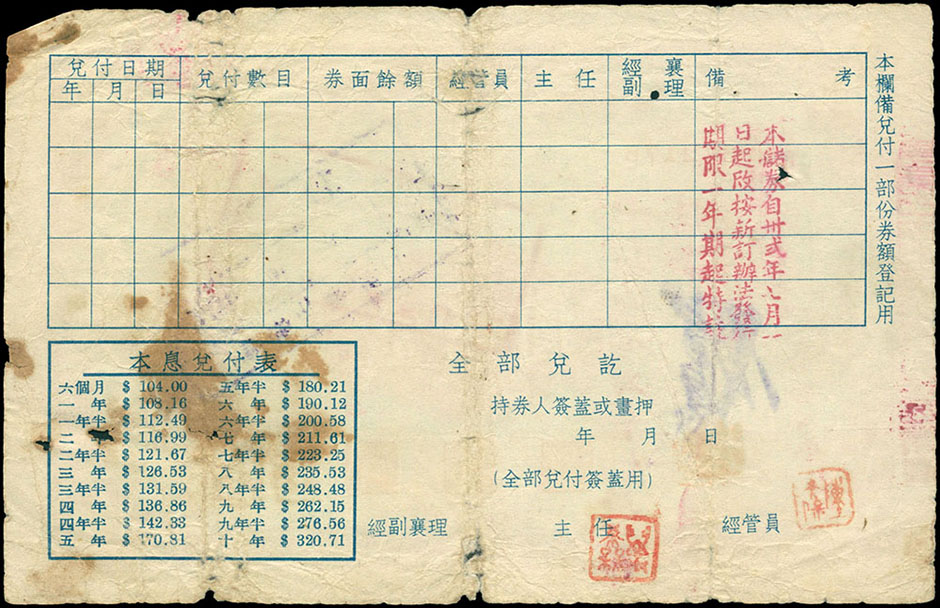 兌付日期 兌付數目 券面餘額 經管員 主任 經副襄理 備考
年 月 日
本欄備兌付一部份券額登記用
本儲券自卅弍年七月
日起改按新訂辦法發行
期限一年期起特註
本息兌付表
六個月 $ 104.00 五年半 $ 180.21
一年 $ 108.16 六年 $ 190.12
一年半 $ 112.49 六年半 $ 200.58
二 $ 116.99 七年 $ 211.61
二年半 $ 121.67 七年半 $ 223.25
三年 $ 126.53 八年 $ 235.53
三年半 $ 131.59 八年半 $ 248.48
四年 $ 136.86 九年 $ 262.15
四年半 $ 142.33 九年半 $ 276.56
五年 $ 170.81 十年 $ 320.71
全部兌訖
持券人簽蓋或畫押
年 月 日
(全部兌付簽蓋用)
經副襄理 主任 經管員